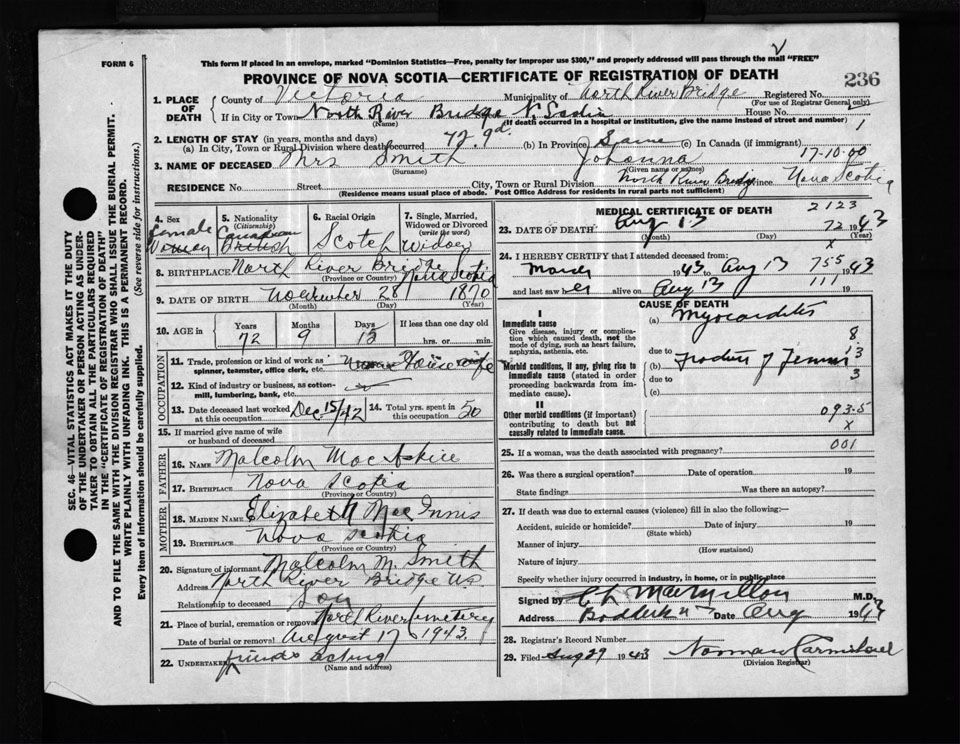 FORM 6
This form if placed in an envelope, marked “Dominion Statistics—Free, penalty for improper use $300,” and properly addressed will pass through the mail “FREE”
PROVINCE OF NOVA SCOTIA—CERTIFICATE OF REGISTRATION OF DEATH
236
SEC. 46—VITAL STATISTICS ACT MAKES IT THE DUTY
OF THE UNDERTAKER OR PERSON ACTING AS UNDER-
TAKER TO OBTAIN ALL THE PARTICULARS REQUIRED
IN THE “CERTIFICATE OF REGISTRATION OF DEATH”
AND TO FILE THE SAME WITH THE DIVISION REGISTRAR WHO SHALL ISSUE THE BURIAL PERMIT.
WRITE PLAINLY WITH UNFADING INK. THIS IS A PERMANENT RECORD.
Every item of information should be carefully supplied. (See reverse side for instructions.)
1. PLACE OF DEATH
County of Victoria Municipality of North River Bridge Registered No.
(For use of Registrar General only)
If in City or Town North River Bridge N. Scotia House No.
(Name) (If death occurred in a hospital or institution, give the name instead of street and number)
2. LENGTH OF STAY (in years, months and days)
(a) In City, Town or Rural Division where death occurred 72.9d. (b) In Province Same (c) In Canada (if immigrant)
1
17-10-00
3. NAME OF DECEASED Mrs Smith Johanna
(Surname) (Given name or names)
RESIDENCE No. Street City, Town or Rural Division North River Bridge Province Nova Scotia
(Residence means usual place of abode. Post Office Address for residents in rural parts not sufficient)
4. Sex female
5. Nationality (Citizenship) Canadian British
6. Racial Origin Scotch
7. Single, Married, Widowed or Divorced (write the word) Widow
8. BIRTHPLACE North River Bridge Nova Scotia
(Province or Country)
9. DATE OF BIRTH November 28 1870
(Month) (Day) (Year)
10. AGE in Years Months Days If less than one day old
72 9 15 hrs. or min.
OCCUPATION
11. Trade, profession or kind of work as spinner, teamster, office clerk, etc. House wife
12. Kind of industry or business, as cotton-mill, lumbering, bank, etc.
13. Date deceased last worked at this occupation Dec 15/42
14. Total yrs. spent in this occupation 50
15. If married give name of wife or husband of deceased
FATHER
16. NAME Malcolm MacAskill
17. BIRTHPLACE Nova Scotia
(Province or Country)
MOTHER
18. MAIDEN NAME Elizabeth MacInnis
19. BIRTHPLACE Nova Scotia
(Province or Country)
20. Signature of informant Malcolm M. Smith
Address North River Bridge NS
Relationship to deceased Son
21. Place of burial, cremation or removal North River Cemetery
Date of burial or removal August 17 1943
22. UNDERTAKER friends acting
(Name and address)
MEDICAL CERTIFICATE OF DEATH
2123
23. DATE OF DEATH Aug 13 72 1943
(Month) (Day) x
24. I HEREBY CERTIFY that I attended deceased from:
1943 to Aug 13 755 1943
and last saw her alive on Aug 13 111 19
CAUSE OF DEATH
I
Immediate cause
Give disease, injury or complication which caused death, not the mode of dying, such as heart failure, asphyxia, asthenia, etc.
(a) Myocarditis
due to
Morbid conditions, if any, giving rise to immediate cause (stated in order proceeding backwards from immediate cause).
(b) Fracture of Femur
due to
(c)
8
3
3
II
Other morbid conditions (if important) contributing to death but not causally related to immediate cause.
093-5
x
25. If a woman, was the death associated with pregnancy? 001
26. Was there a surgical operation? Date of operation 19
State findings Was there an autopsy?
27. If death was due to external causes (violence) fill in also the following:—
Accident, suicide or homicide? Date of injury 19
(State which)
Manner of injury
(How sustained)
Nature of injury
Specify whether injury occurred in industry, in home, or in public place
Signed by M.D.
Address Baddeck Date Aug 1943
28. Registrar's Record Number
29. Filed Aug 29 1943 Norman Carmichael
(Division Registrar)